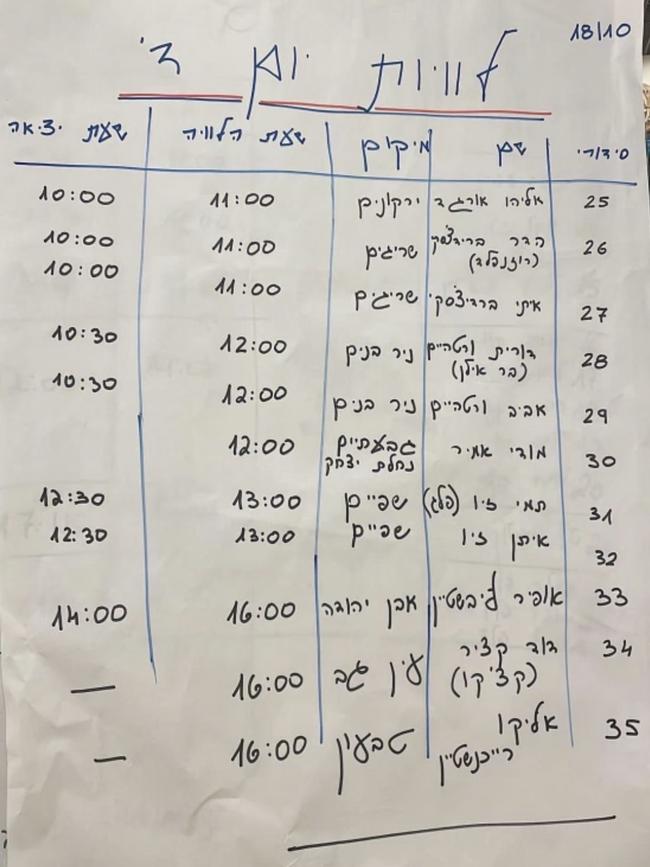 18/10
לוויות יום ד'
סידורי שם מיקום שעת הלוויה שעת יציאה
25 אליהו אורגד ירקונים 11:00 10:00
26 הדר ברידצ'סקי שריגים 11:00 10:00
(רוזנפלד)
27 איתי ברדיצ'סקי שריגים 11:00 10:00
28 דורית ורטהיים ניר בנים 12:00 10:30
(בר אילן)
29 אביב ורטהיים ניר בנים 12:00 10:30
30 מודי אמיר גבעתיים 12:00
נחלת יצחק
31 תמי זיו (פלג) שפיים 13:00 12:30
32 איתן זיו שפיים 13:00 12:30
33 אופיר ליבשטיין אבן יהודה 16:00 14:00
34 דוד קציר עין גב 16:00 —
(קצ'יקו)
35 אליקו טבעון 16:00 —
רייכנשטיין